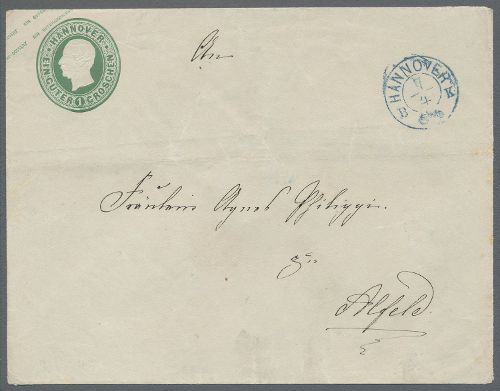 HANNOVER
EIN GUTER 1 GROSCHEN
An
HANNOVER
Fräulein Agnes Philippi.
zu
Alfeld.